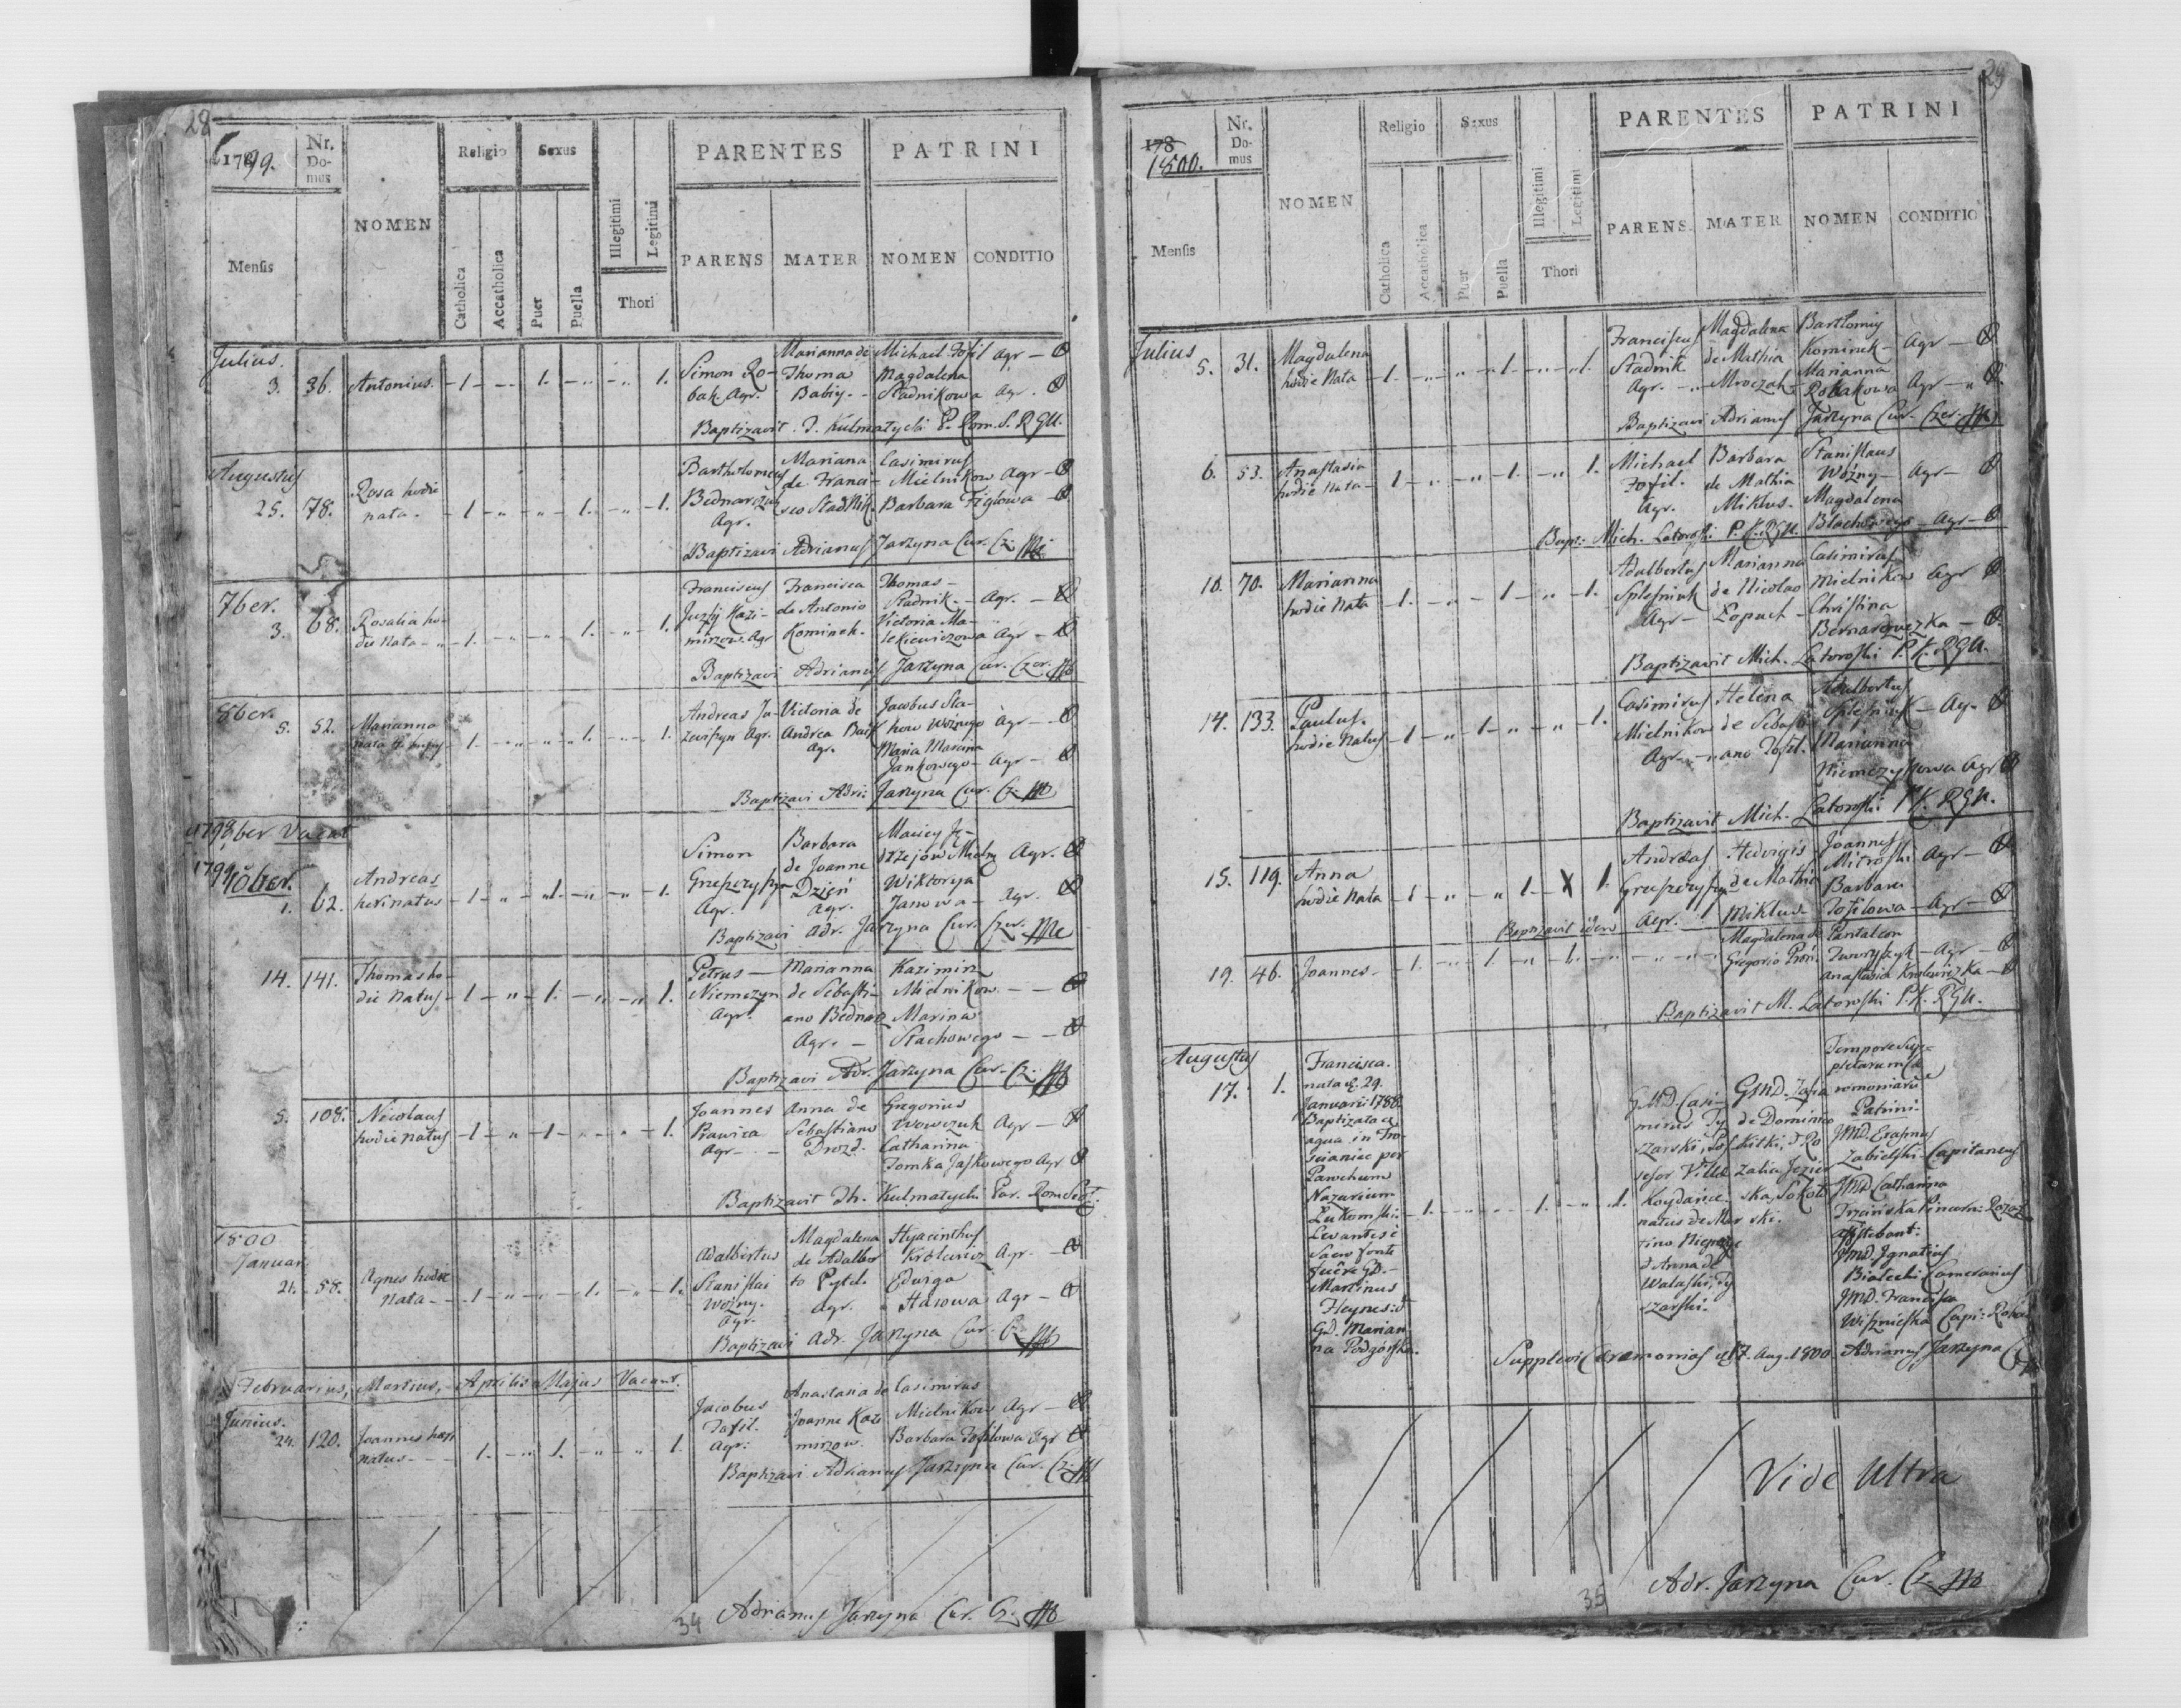 28
1799.
Nr. Domus
NOMEN
Religio
Sexus
PARENTES
PATRINI
Mensis
Catholica
Accatholica
Puer
Puella
Illegitimi
Legitimi
Thori
PARENS
MATER
NOMEN
CONDITIO
Julius.
3. 36. Antonius. 1 1. 1.
Simon Robak Agr.
Marianna de Thoma Babiy.
Michael Tofil Agr
Magdalena Stadnikowa Agr.
Baptizavit. J. Kulmatycki P. Rom. S. RGU.
Augustus
25. 78. Rosa hodie nata. 1 1. 1.
Bartholomeus Bednarczuk Agr.
Mariana de Francisco Stadnik.
Casimirus Mielnikow Agr
Barbara Figlowa
Baptizavi Adrianus Jarzyna Cur. Cz.
7ber.
3. 68. Rosalia hodie nata 1. 1. 1.
Franciscus Juzky Kazimirzow. Agr
Francisca de Antonio Kominek.
Thomas Stadnik. Agr.
Victoria Malekiewiczowa Agr
Baptizavi Adrianus Jarzyna Cur. Czer.
8ber.
5. 52. Marianna nata 1. 1. 1.
Andreas Agr.
Victoria de Andrea Agr.
Jacobus Stahow Woznego Agr
Maria Marcina Jankowego Agr
Baptizavi Adri. Jarzyna Cur. Cz.
1799 9ber Vacat
1799 10ber.
1. 62. Andreas heri natus 1. 1. 1.
Simon Agr.
Barbara de Joanne Dzień Agr.
Maciey Jędrzejow Agr.
Wiktorya Janowa Agr.
Baptizavi Adr. Jarzyna Cur. Czer.
14. 141. Thomas hodie natus 1 1. 1.
Petrus Niemczyn Agr.
Marianna de Sebastiano Bednarz Agr.
Kazimirz Mielnikow.
Marina Stachowego
Baptizavi Adr. Jarzyna Cur. Cz.
5. 108. Nicolaus hodie natus 1 1 1.
Joannes Prawica Agr
Anna de Sebastiano Drozd.
Gregorius Wowczuk Agr
Catharina Tomka Jaskowego Agr
Baptizavit Kulmatycki Par. Rom.
1800
Januar.
21. 58. Agnes hodie nata 1 1. 1.
Adalbertus Stanislai Wożny. Agr.
Magdalena de Adalberto Pytel. Agr.
Hyacinthus Krolewicz Agr.
Eduiga Stasowa Agr
Baptizavi Adr. Jarzyna Cur. Cz.
Februarius, Martius, Aprilis Majus Vacant.
Junius.
24. 120. Joannes heri natus 1. 1. 1.
Jacobus Tofil. Agr.
Anastasia de Joanne Kazimirzow.
Casimirus Mielnikow Agr
Barbara Tofilowa Agr
Baptizavi Adrianus Jarzyna Cur. Cz.
34
Adrianus Jarzyna Cur. Cz.
29
178
1800.
Nr. Domus
NOMEN
Religio
Sexus
PARENTES
PATRINI
Mensis
Catholica
Accatholica
Puer
Puella
Illegitimi
Legitimi
Thori
PARENS
MATER
NOMEN
CONDITIO
Julius
5. 31. Magdalena hodie nata 1. 1. 1.
Franciscus Stadnik Agr.
Magdalena de Mathia Mroczak
Bartlomiy Kominek Agr
Marianna Robakowa Agr
Baptizavi Adrianus Jarzyna Cur. Czer.
6. 53. Anastasia hodie nata 1 1. 1.
Michael Tofil. Agr.
Barbara de Mathia Miklus.
Stanislaus Woźny Agr
Magdalena Agr
Bapt. Mich. Latoroski P. K. RGU.
10. 70. Marianna hodie nata 1. 1 1.
Adalbertus Splesniuk Agr
Marianna de Nicolao Lopuch
Casimirus Mielnikow Agr
Christina
Baptizavit Mich. Latoroski P. K. RGU.
14. 133. Paulus hodie natus 1 1 1.
Casimirus Mielnikow Agr
Helena de Sebastiano Tofil.
Adalbertus Splesniuk Agr
Marianna Agr
Baptizavit Mich. Latoroski P. K. RGU.
15. 119. Anna hodie nata 1 1 X 1.
Andreas Agr.
Hedvigis de Mathia Miklus
Joannes Mitroski Agr
Barbara Tofilowa Agr
Baptizavit idem
19. 46. Joannes 1. 1. 1.
Magdalena de Gregorio
Pantaleon Agr
Anastasia
Baptizavit M. Latoroski P. K. RGU.
Augustus
17. 1. Francisca. nata d. 29. Januarii 1788. Baptizata ex aqua in Trościaniec per Parochum Nazarium Levantes e Sacro fonte fuere GD. Martinus et GD. Marianna Podgórska. 1. 1. 1.
GMD. Casimirus Tyszarski, Possessor Villae natus de Martino d Anna de Walaski, Tyszarski.
GMD. Zofia de Dominico
Tempore Suppletarum Caeremoniarum Patrini
JMD. Erasmus Zabielski Capitaneus
JMD. Catharina
Assistebant:
JMD. Ignatius Białecki Camerarius
JMD. Francisca
Supplevi Caeremonias d. 17. Aug. 1800 Adrianus Jarzyna Cz.
Vide Ultra
35
Adr. Jarzyna Cur. Cz.